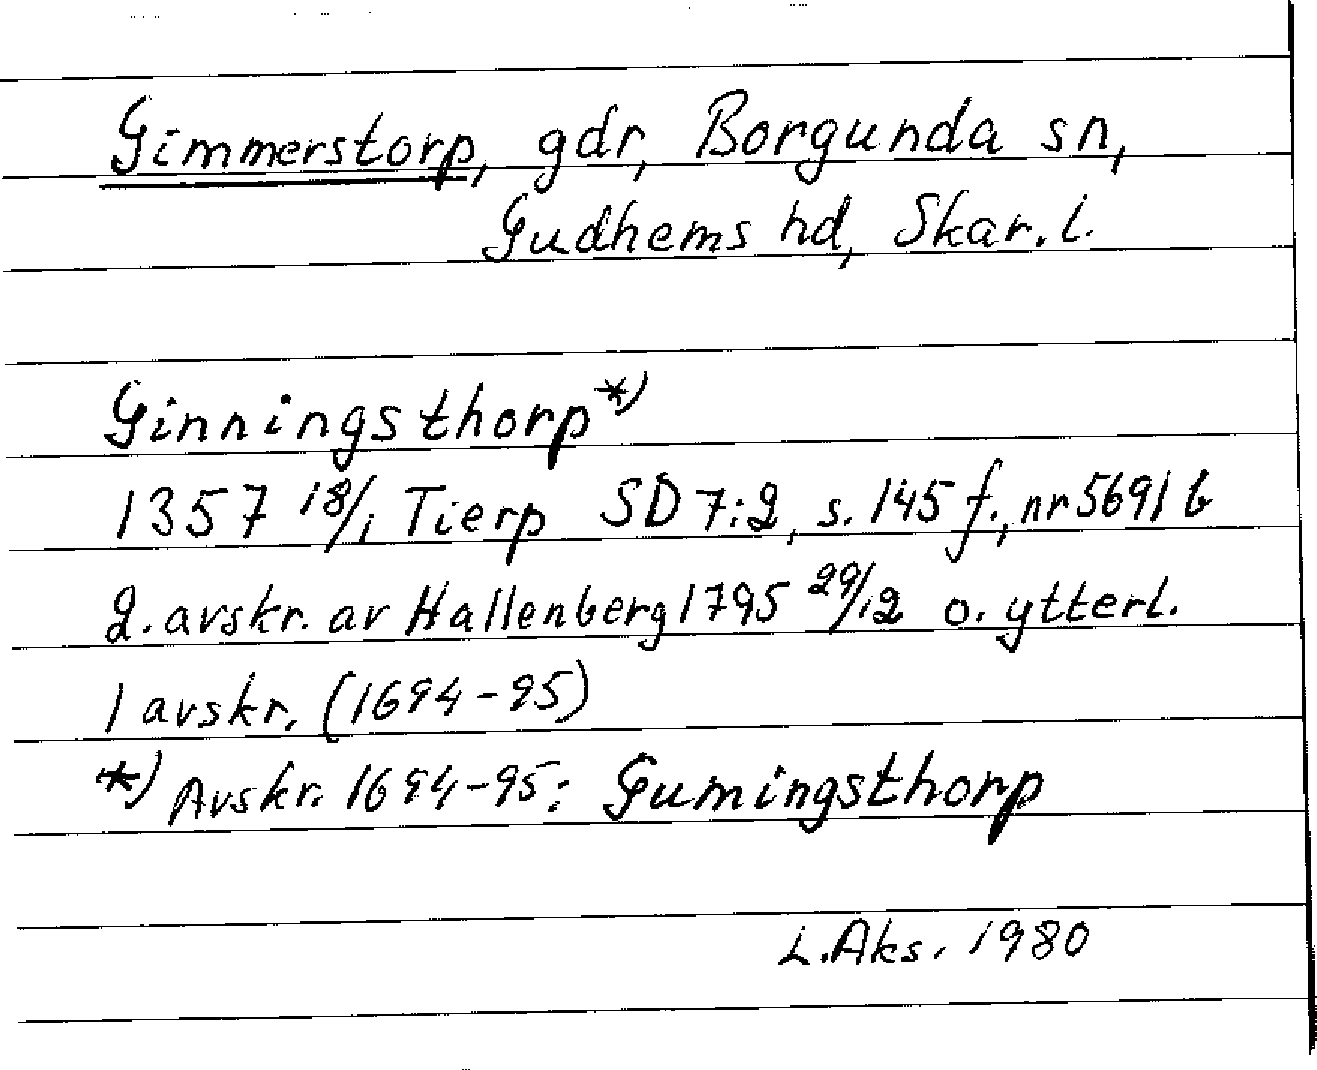 Gimmerstorp, gdr, Borgunda sn,
Gudhems hd, Skar. l.
Ginningsthorp*)
1357 18/1 Tierp SD 7:2, s. 145 f., nr 5691 b
2. avskr. av Hallenberg 1795 29/12 o. ytterl.
1 avskr. (1694-95)
*) Avskr. 1694-95: Gumingsthorp
L. Aks. 1980